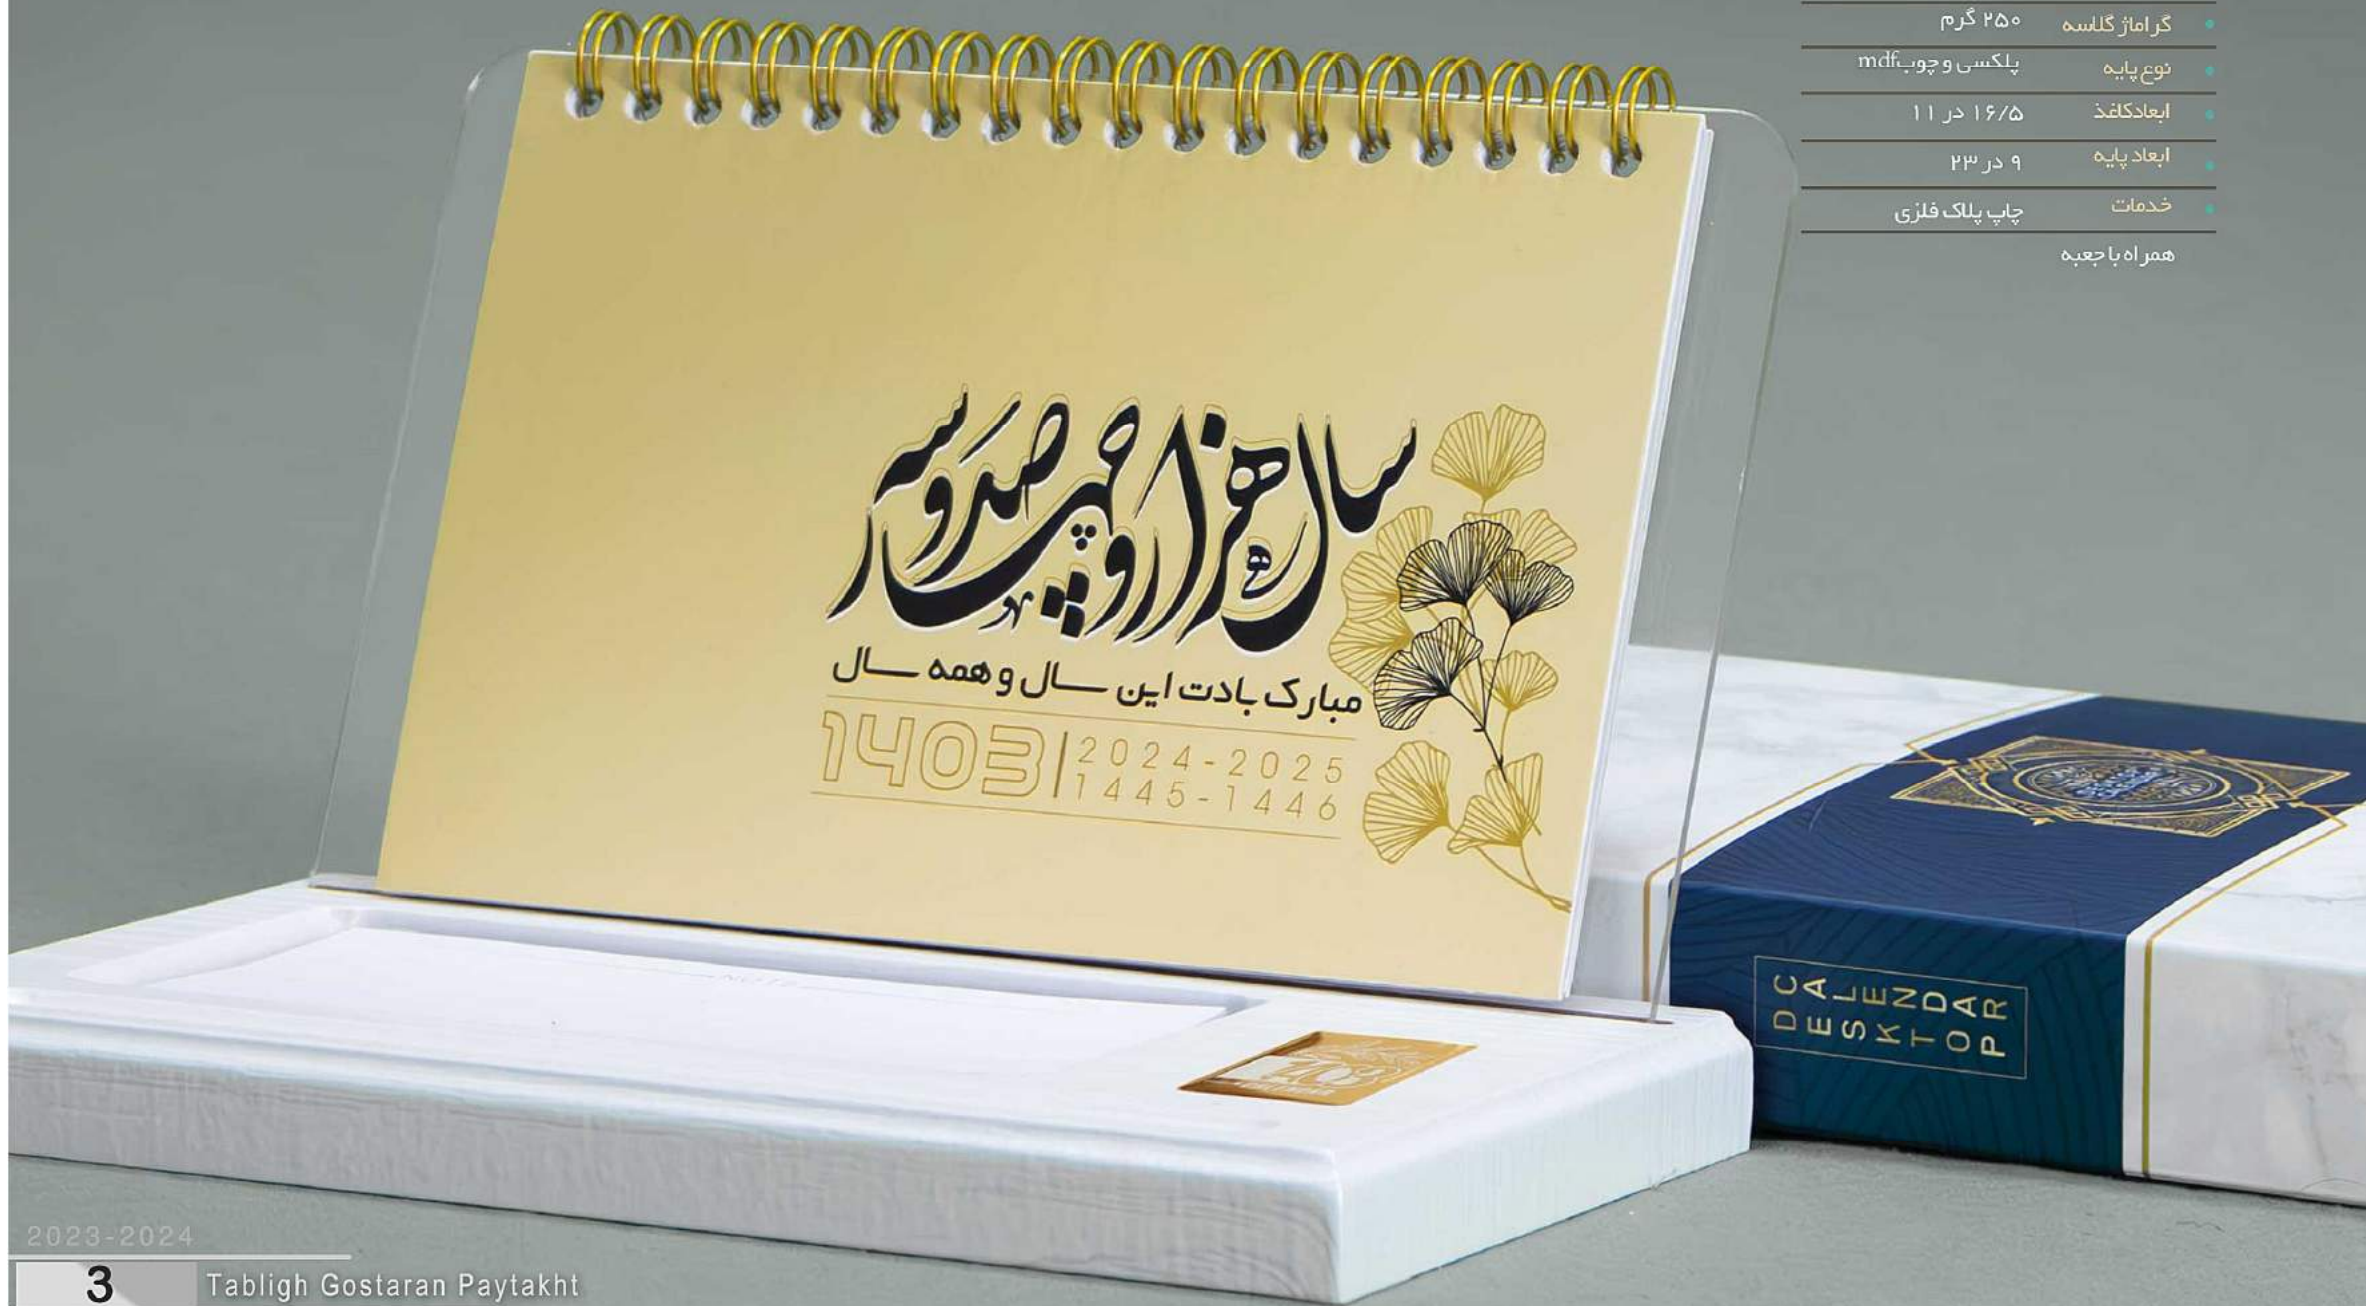 گراماژ گلاسه ۲۵۰ گرم
نوع پایه پلکسی و چوب mdf
ابعاد کاغذ ۱۶/۵ در ۱۱
ابعاد پایه ۹ در ۲۳
خدمات چاپ پلاک فلزی
همراه با جعبه
سال هزار و چهارصد و سه
مبارک بادت این سال و همه سال
1403 | 2024-2025
1445-1446
CALENDAR
DESKTOP
NOTE
2023-2024
3 Tabligh Gostaran Paytakht